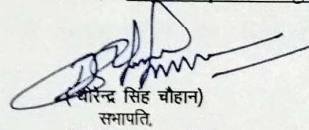 (धीरेन्द्र सिंह चौहान)
सभापति,